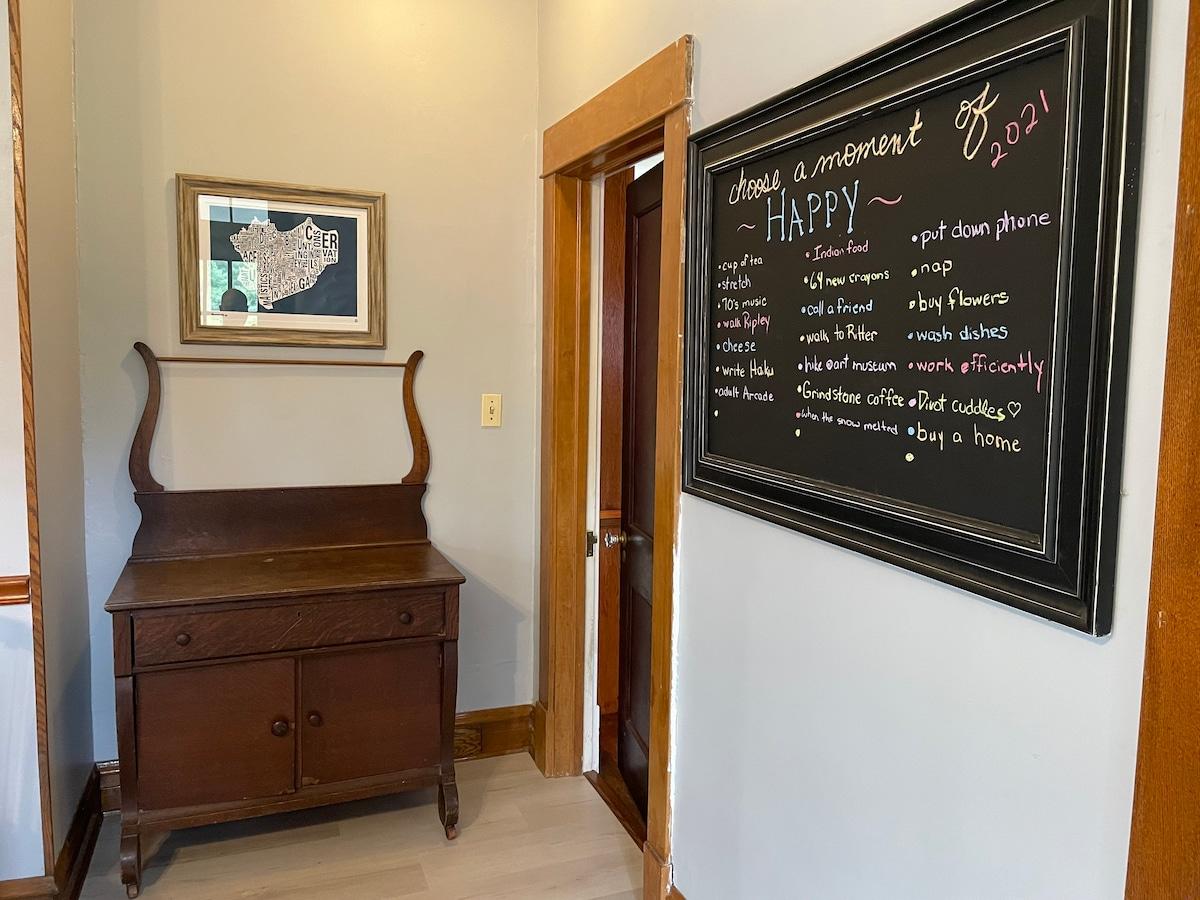 choose a moment of
2021
~ HAPPY ~
• cup of tea
• stretch
• 70's music
• walk Ripley
• cheese
• write Haku
• adult Arcade
•
• Indian food
• 64 new crayons
• call a friend
• walk to Ritter
• hike @art museum
• Grindstone coffee
• when the snow melted
•
• put down phone
• nap
• buy flowers
• wash dishes
• work efficiently
• Divot cuddles ♡
• buy a home
•
CER
VAT
ION